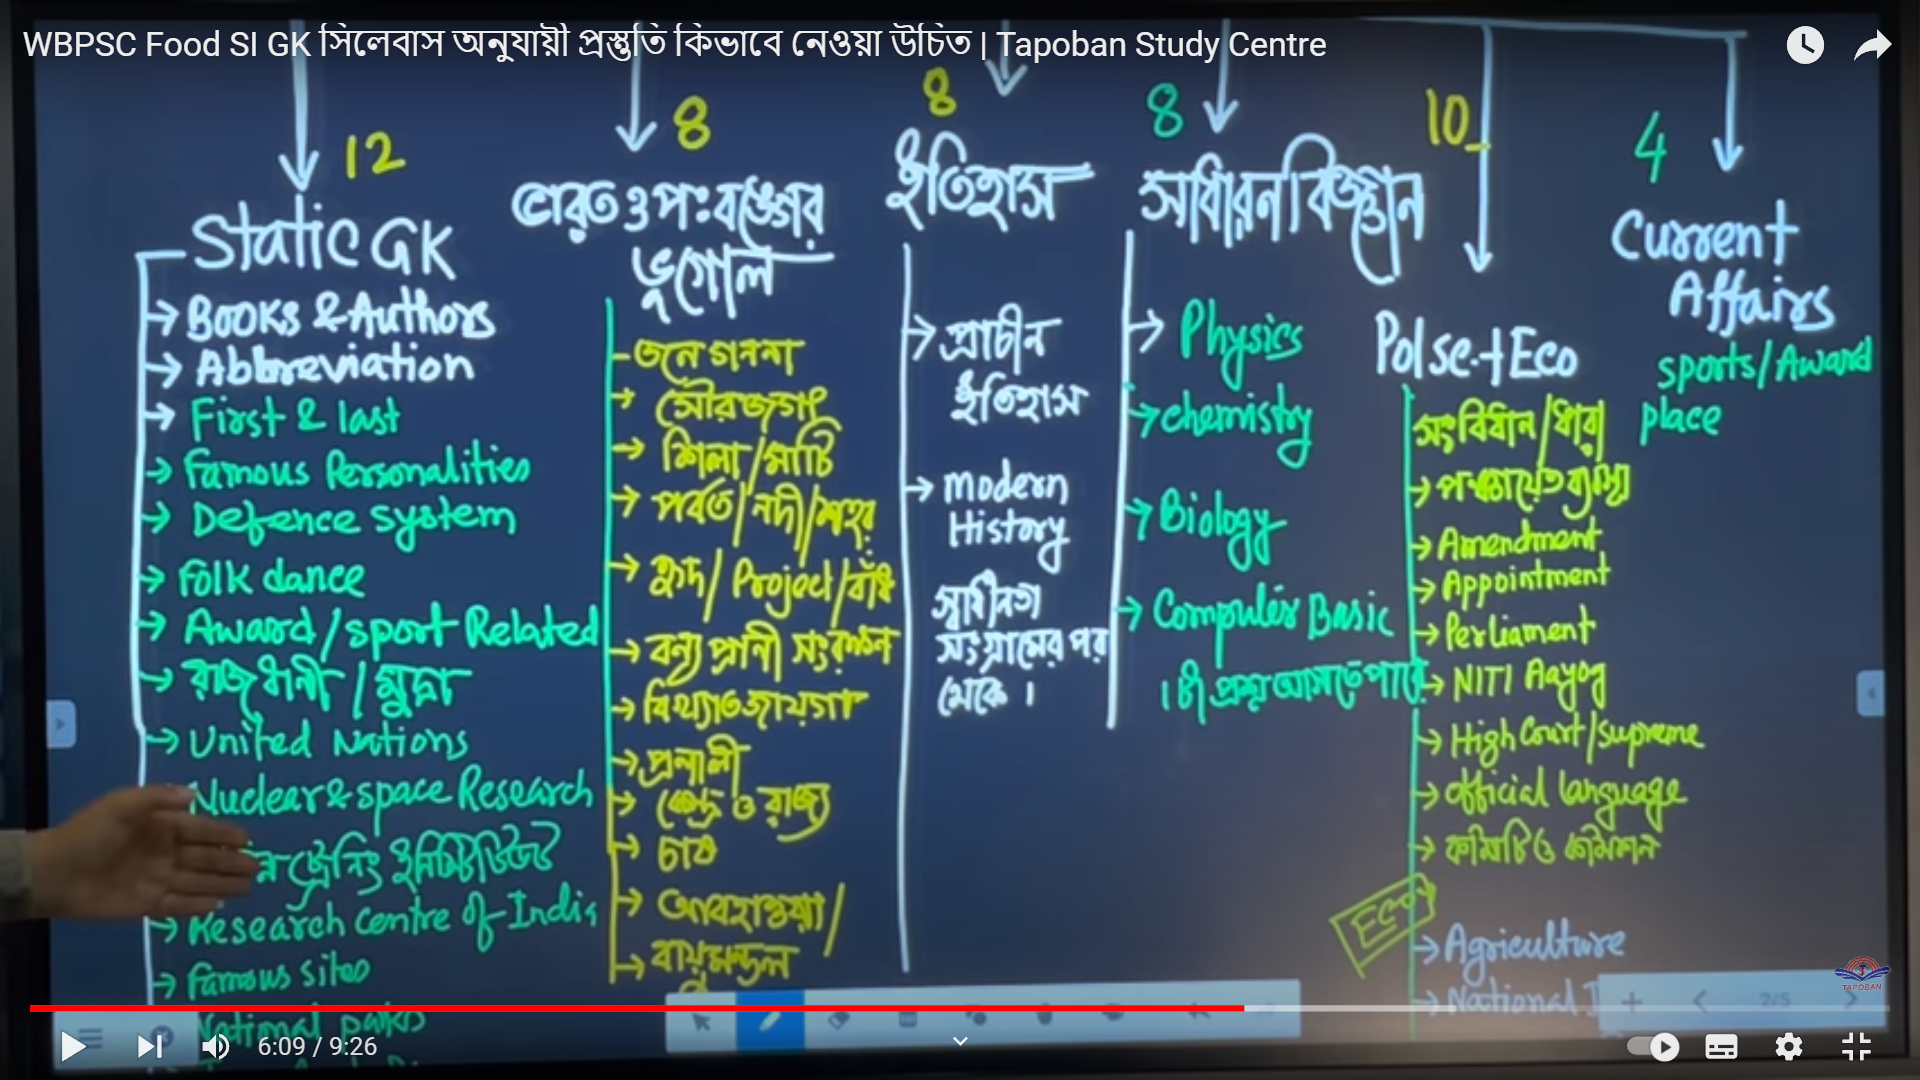 WBPSC Food SI GK সিলেবাস অনুযায়ী প্রস্তুতি কিভাবে নেওয়া উচিত | Tapoban Study Centre
12
Static GK
→ Books & Authors
→ Abbreviation
→ First & last
→ Famous Personalities
→ Defence system
→ Folk dance
→ Award/sport Related
→ রাজধানী / মুদ্রা
→ United Nations
Nuclear & space Research
ট্রেনিং ইনস্টিটিউট
→ Research centre of India
→ Famous sites
National parks
8
ভারত ও পঃবঙ্গের
ভূগোল
জনগননা
→ সৌরজগৎ
→ শিলা/মাটি
→ পর্বত/নদী/শহর
→ হ্রদ/Project/বাঁধ
→ বন্য প্রানী সংরক্ষন
→ বিখ্যাত জায়গা
→ প্রনালী
→ কেন্দ্র ও রাজ্য
→ চাষ
→ আবহাওয়া/
→ বায়ুমন্ডল
8
ইতিহাস
→ প্রাচীন
ইতিহাস
→ Modern
History
স্বাধীনতা
সংগ্রামের পর
থেকে।
8
সাধারন বিজ্ঞান
→ Physics
→ chemistry
→ Biology
→ Computer Basic
১টা প্রশ্ন আসতে পারে
10
Pol sc.+Eco
সংবিধান/ধারা
→ পঞ্চায়েত ব্যবস্থা
→ Amendment
→ Appointment
→ Perliament
→ NITI Aayog
→ High Court/supreme
→ official language
→ কমিটি ও কমিশন
ECO
→ Agriculture
→ National I
4
Current
Affairs
sports/Award
place
TAPOBAN
2/5
6:09 / 9:26